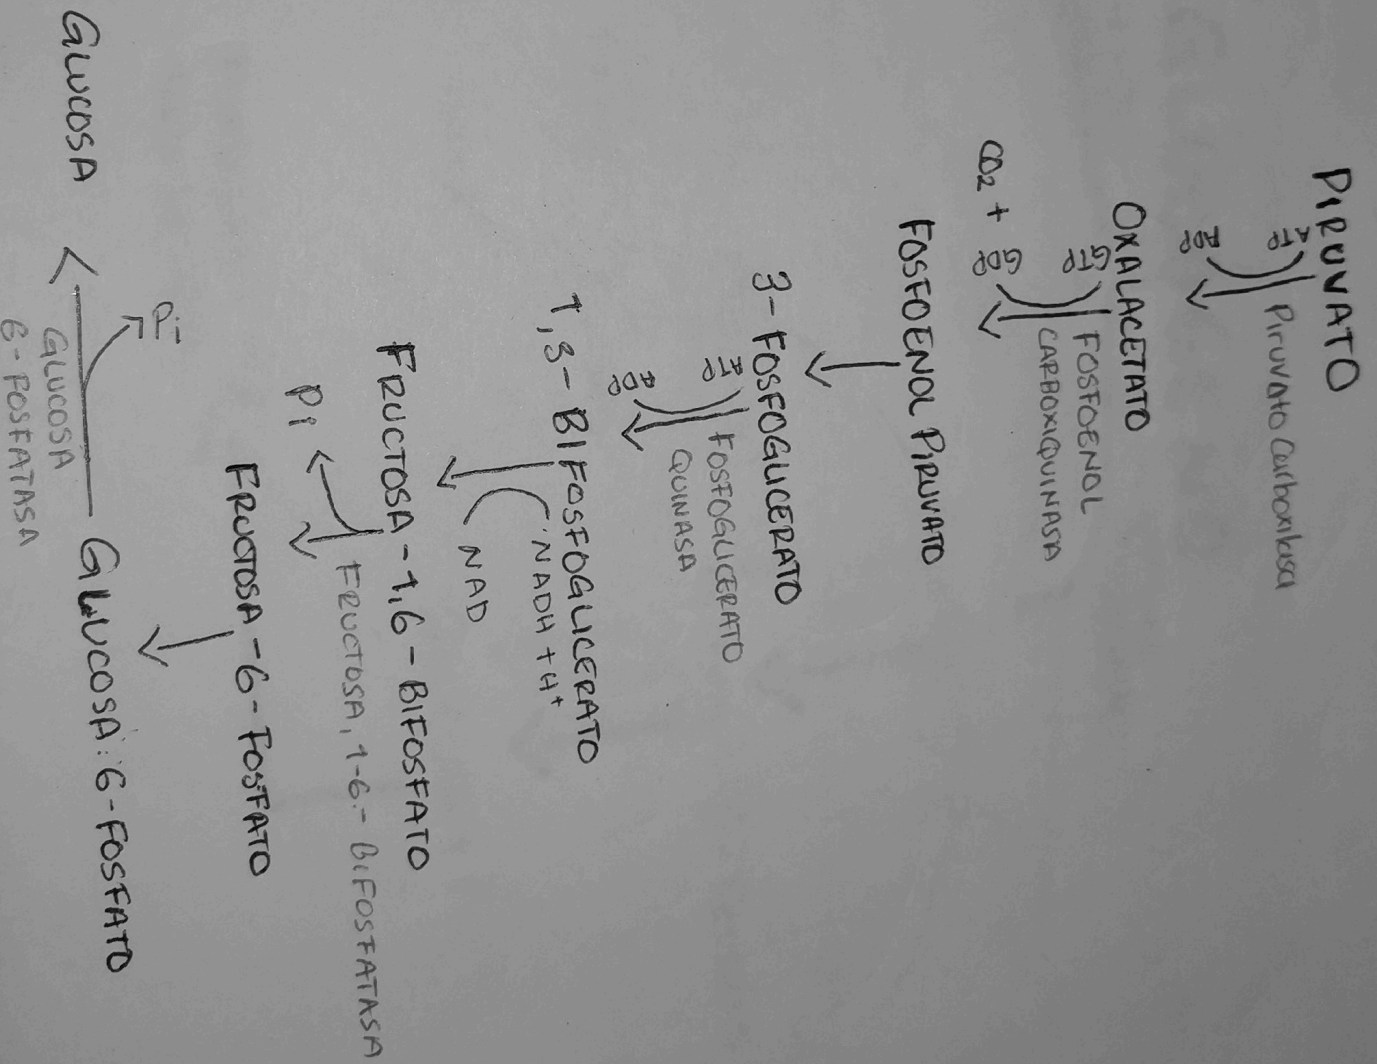 PIRUVATO
ATP
Piruvato Carboxilasa
ADP
OXALACETATO
GTP
FOSFOENOL
CARBOXIQUINASA
CO2 + GDP
FOSFOENOL PIRUVATO
3-FOSFOGLICERATO
ATP
FOSFOGLICERATO
QUINASA
ADP
1,3-BIFOSFOGLICERATO
NADH + H+
NAD
FRUCTOSA-1,6-BIFOSFATO
FRUCTOSA, 1-6-BIFOSFATASA
Pi
FRUCTOSA-6-FOSFATO
GLUCOSA:6-FOSFATO
Pi
GLUCOSA
6-FOSFATASA
GLUCOSA